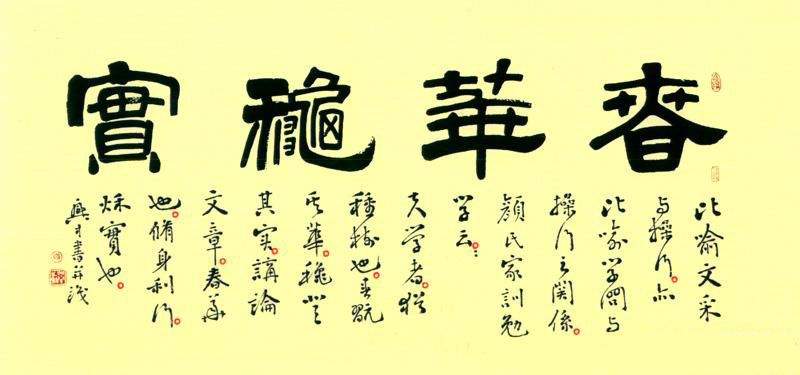 春華龝實
比喻文采
与操行。亦
比喻学問与
操行之関係。
顔氏家訓勉
学云：
夫学者。猶
種樹也。春翫
其華。龝登
其実。講論
文章。春華
也。脩身利行。
秋實也。
興才書并識